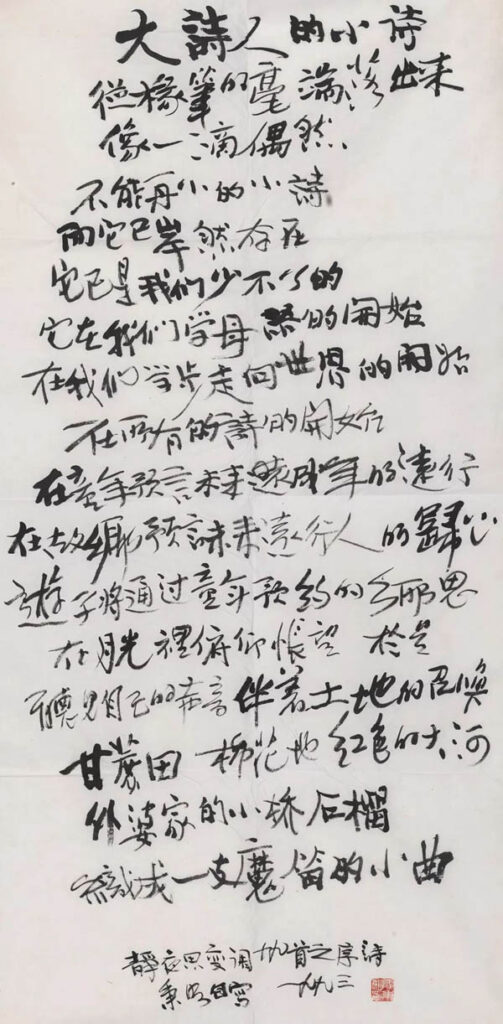 大詩人的小诗
從椽筆的毫端落出来
像一滴偶然
不能再小的小詩
而它已岸然存在
它已是我们少不了的
它在我们学母語的開始
在我们学步走向世界的開始
在所有的詩的開始
在童年预言未来成年的遠行
在故鄉预言未来遠行人的歸心
遊子将通过童年预约的乡思
在月光裡俯仰怅望 於是
聽見自己的音伴着土地的召唤
甘蔗田 棉花地 红色的大河
外婆家的小桥石榴
織成一支魔笛的小曲
靜夜思变调 首之序诗
秉明自寫 一九九三